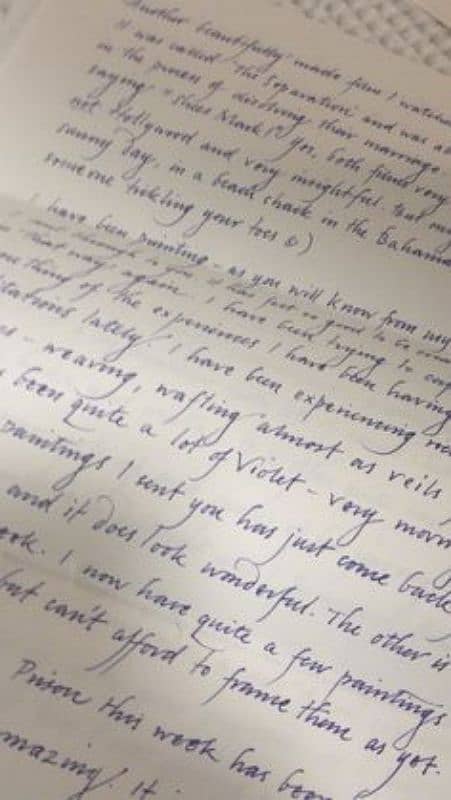 Another beautifully made film I watched
it was called "The Separation", and was a
in the process of dissolving their marriage.
saying "shees Mark!" Yes, both films very
not Hollywood and very insightful. But my
sunny day, in a beach shack in the Bahamas
someone tickling your toes
I have been painting - as you will know from my
that way again. I have been trying to
thing of the experiences I have been having
lately. I have been experiencing
- weaving, wafting almost as veils
been quite a lot of Violet - very
paintings I sent you has just come back
and it does look wonderful. The other is
I now have quite a few paintings
but can't afford to frame them as yet.
Prison this week has been
amazing! It